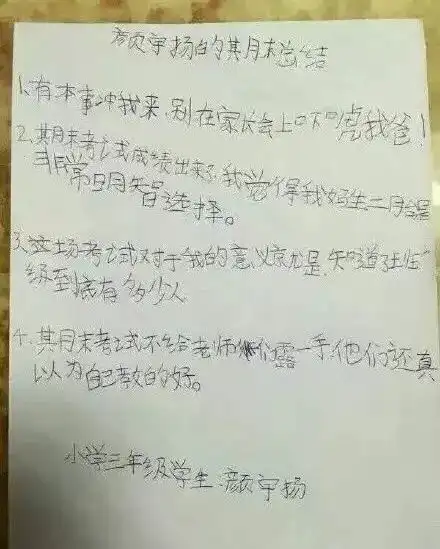 颜宇扬的期月末总结
1.有本事冲我来,别在家长会上吓唬我爸!
2.期月末考试成绩出来了,我觉得我妈生二胎
非常明智选择。
3.这场考试对于我的意义就是,知道了班
级到底有多少人
4.期月末考试不给老师们露一手,他们还真
以为自己教的好。
小学三年级学生:颜宇扬